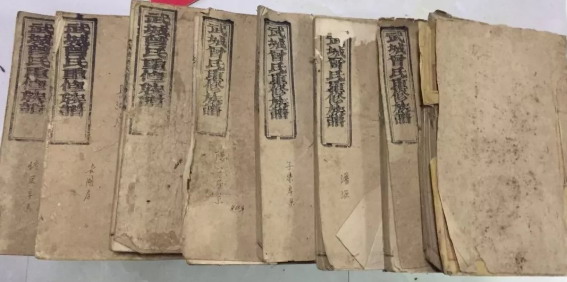 武城曾氏重修族譜
武城曾氏重修族譜
武城曾氏重修族譜
武城曾氏重修族譜
武城曾氏重修族譜
武城曾氏重修族譜
武城曾氏重修族譜